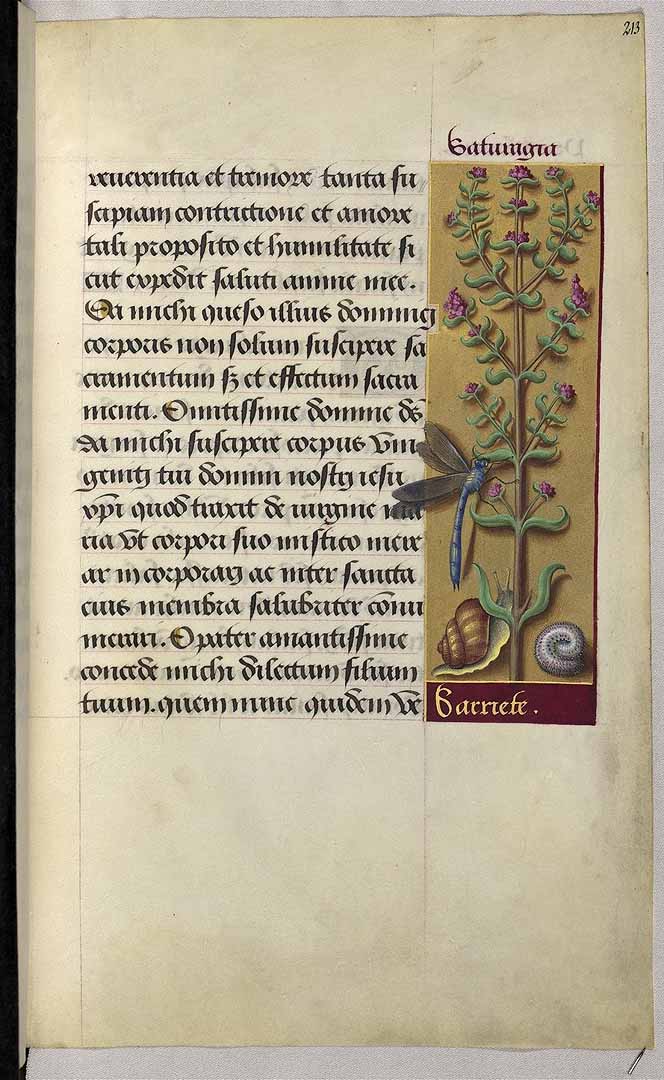 213
Satuirgia
reuerentia et tremore tanta su
scipiam contrictione et amore
tali proposito et humilitate si
cut expedit saluti anime mee.
Da michi queso illius dominicj
corporis non solum suscipere sa
cramentum sz et effectum sacra
menti. O mitissime domine ds̄
da michi suscipere corpus vni
genitj tui domini nostrj iesu
xp̄i quod traxit de uirgine ma
ria vt corpori suo mistico mere
ar in corporarj ac inter sancta
eius membra salubriter cōnu
merari. O pater amantissime
concede michi dilectum filium
tuum. quem nunc quidem ve
Sarriete.